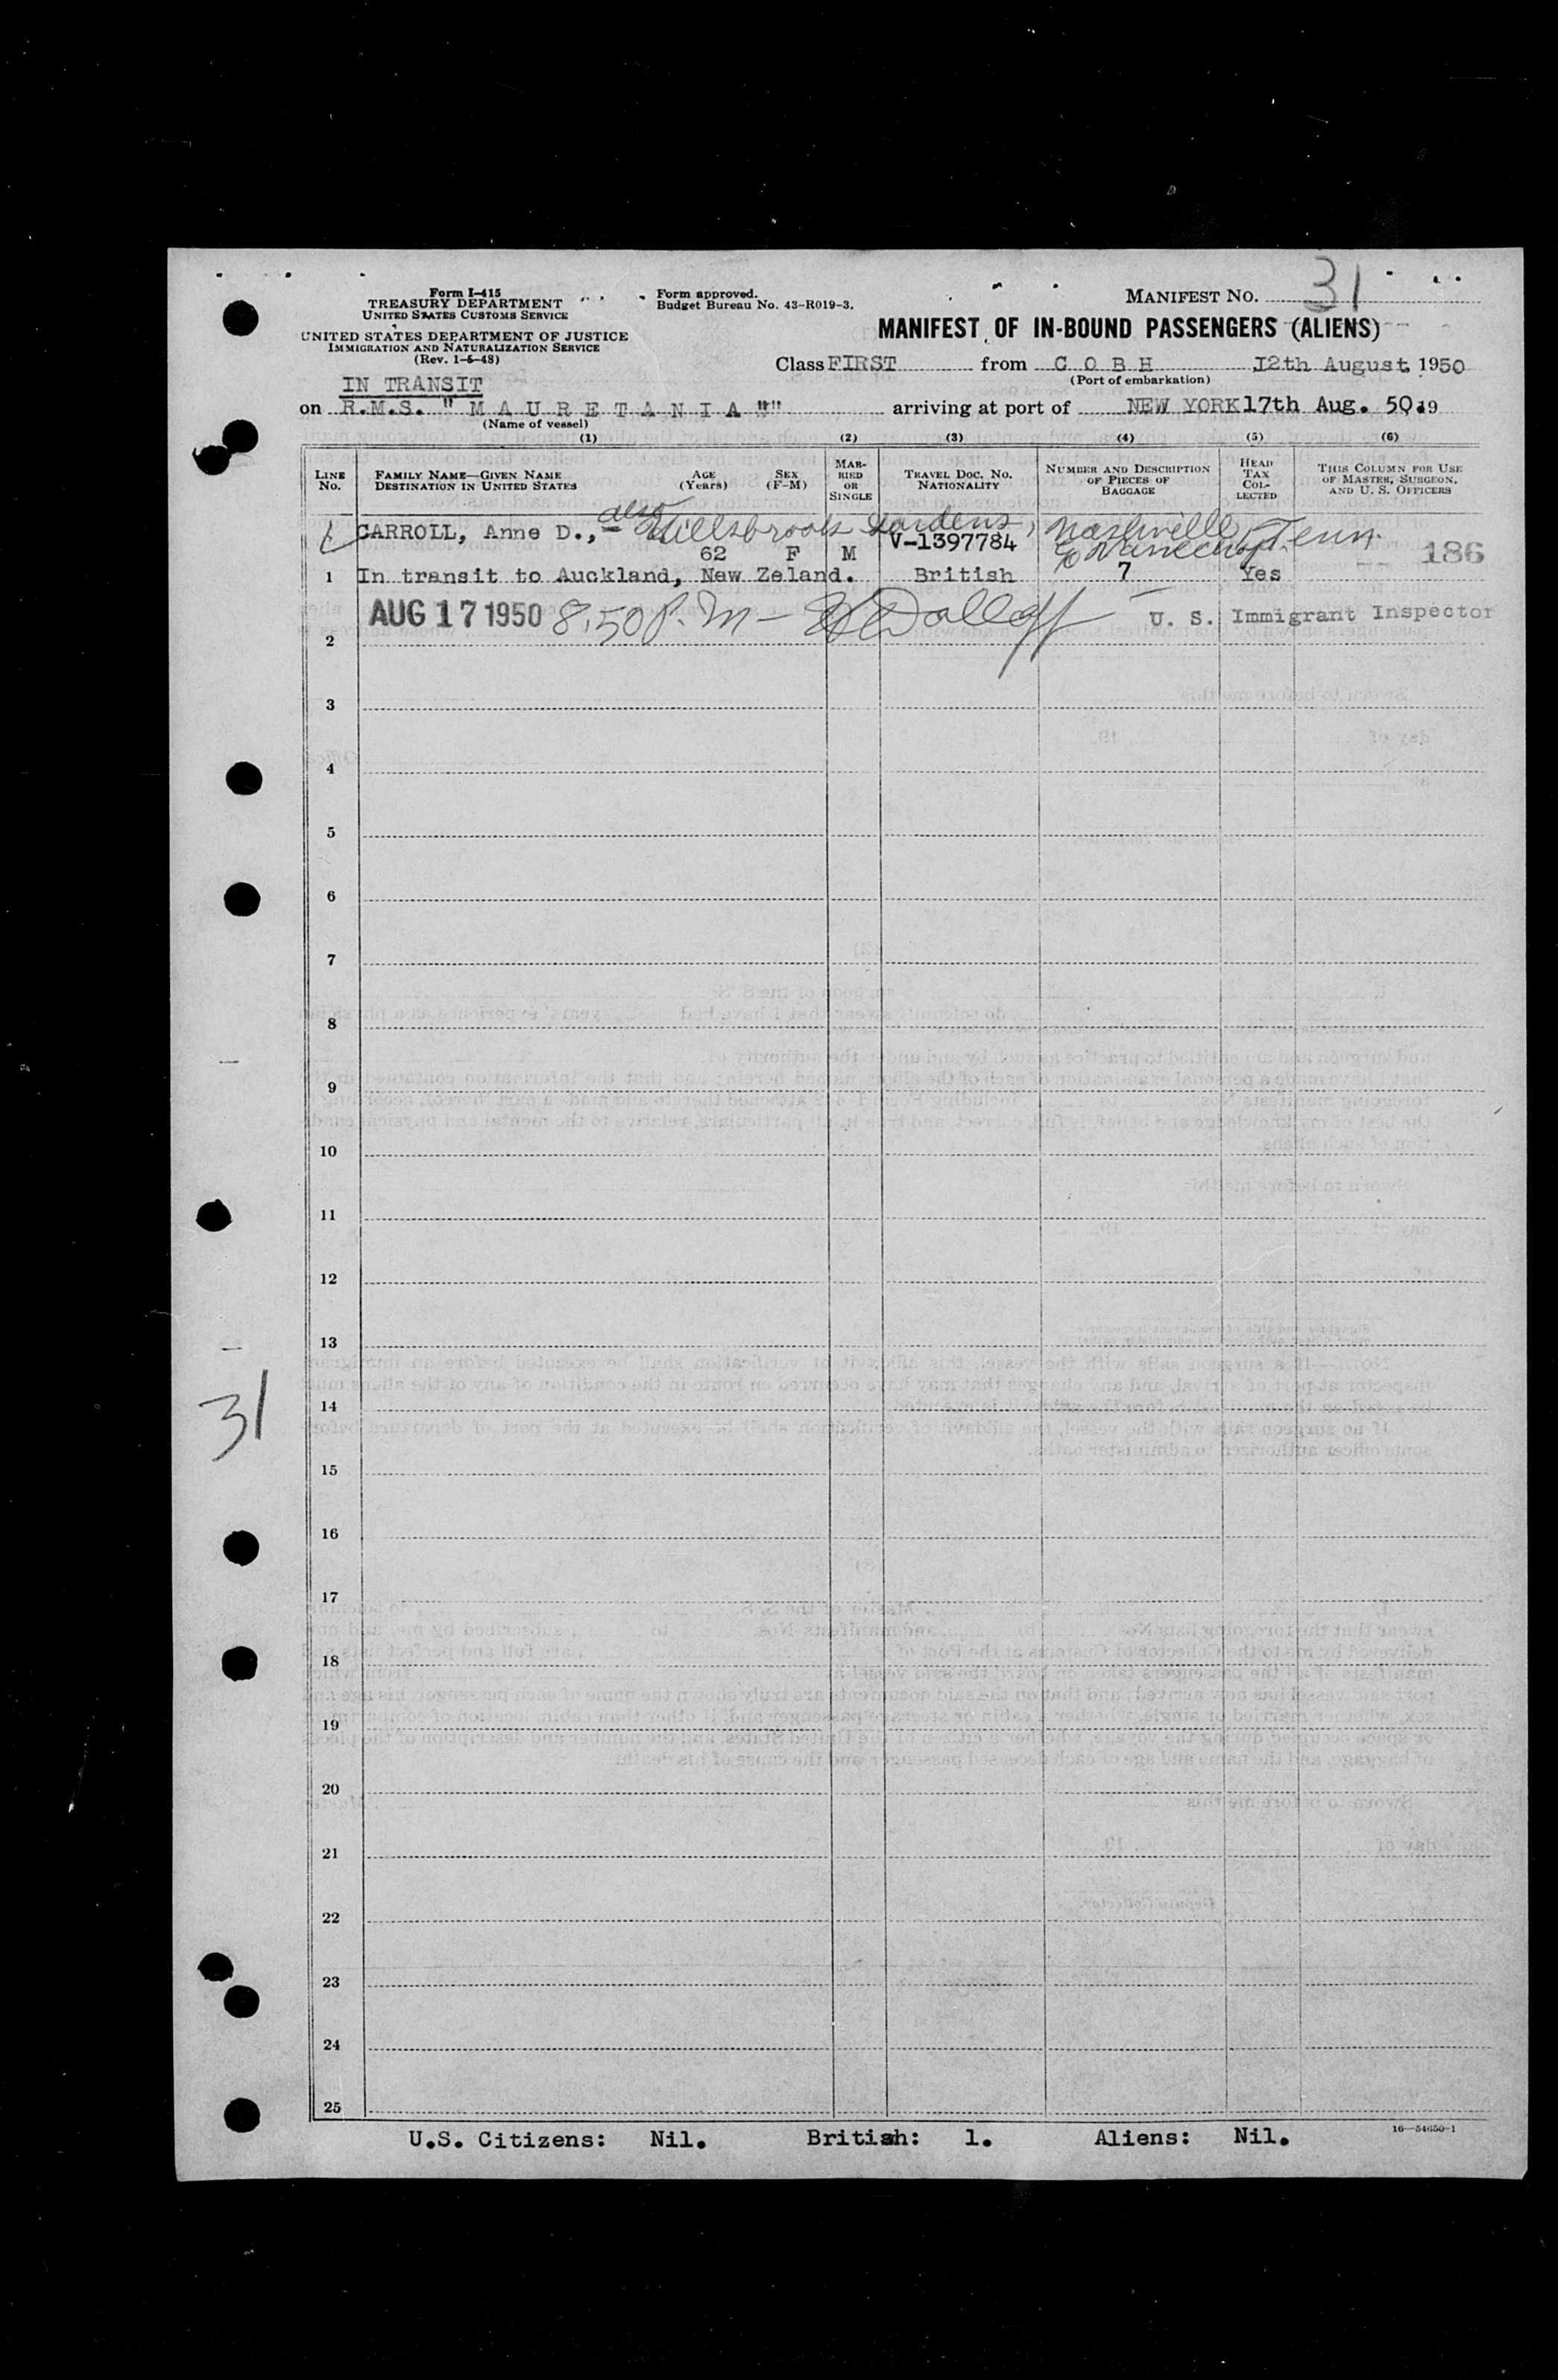 31
Form I-415
TREASURY DEPARTMENT
UNITED STATES CUSTOMS SERVICE
UNITED STATES DEPARTMENT OF JUSTICE
IMMIGRATION AND NATURALIZATION SERVICE
(Rev. 1-5-48)
Form approved.
Budget Bureau No. 43-R019-3.
MANIFEST NO. 31
MANIFEST OF IN-BOUND PASSENGERS (ALIENS)
Class FIRST from C O B H 12th August, 1950
(Port of embarkation)
IN TRANSIT
on R.M.S. " M A U R E T A N I A "" arriving at port of NEW YORK 17th Aug. 50.19
(Name of vessel)
(1) (2) (3) (4) (5) (6)
LINE NO. FAMILY NAME—GIVEN NAME DESTINATION IN UNITED STATES AGE (Years) SEX (F-M) MARRIED OR SINGLE TRAVEL DOC. NO. NATIONALITY NUMBER AND DESCRIPTION OF PIECES OF BAGGAGE HEAD TAX COLLECTED THIS COLUMN FOR USE OF MASTER, SURGEON, AND U. S. OFFICERS
CARROLL, Anne D., also Hillsbrook Gardens, Nashville, Tenn.
62 F M V-1397784 186
1 In transit to Auckland, New Zeland. British 7 Yes
AUG 17 1950 8:50 P.M — U. S. Immigrant Inspector
2
3
4
5
6
7
8
9
10
11
12
13
14
31
15
16
17
18
19
20
21
22
23
24
25
U.S. Citizens: Nil. British: 1. Aliens: Nil.
16—54650-1